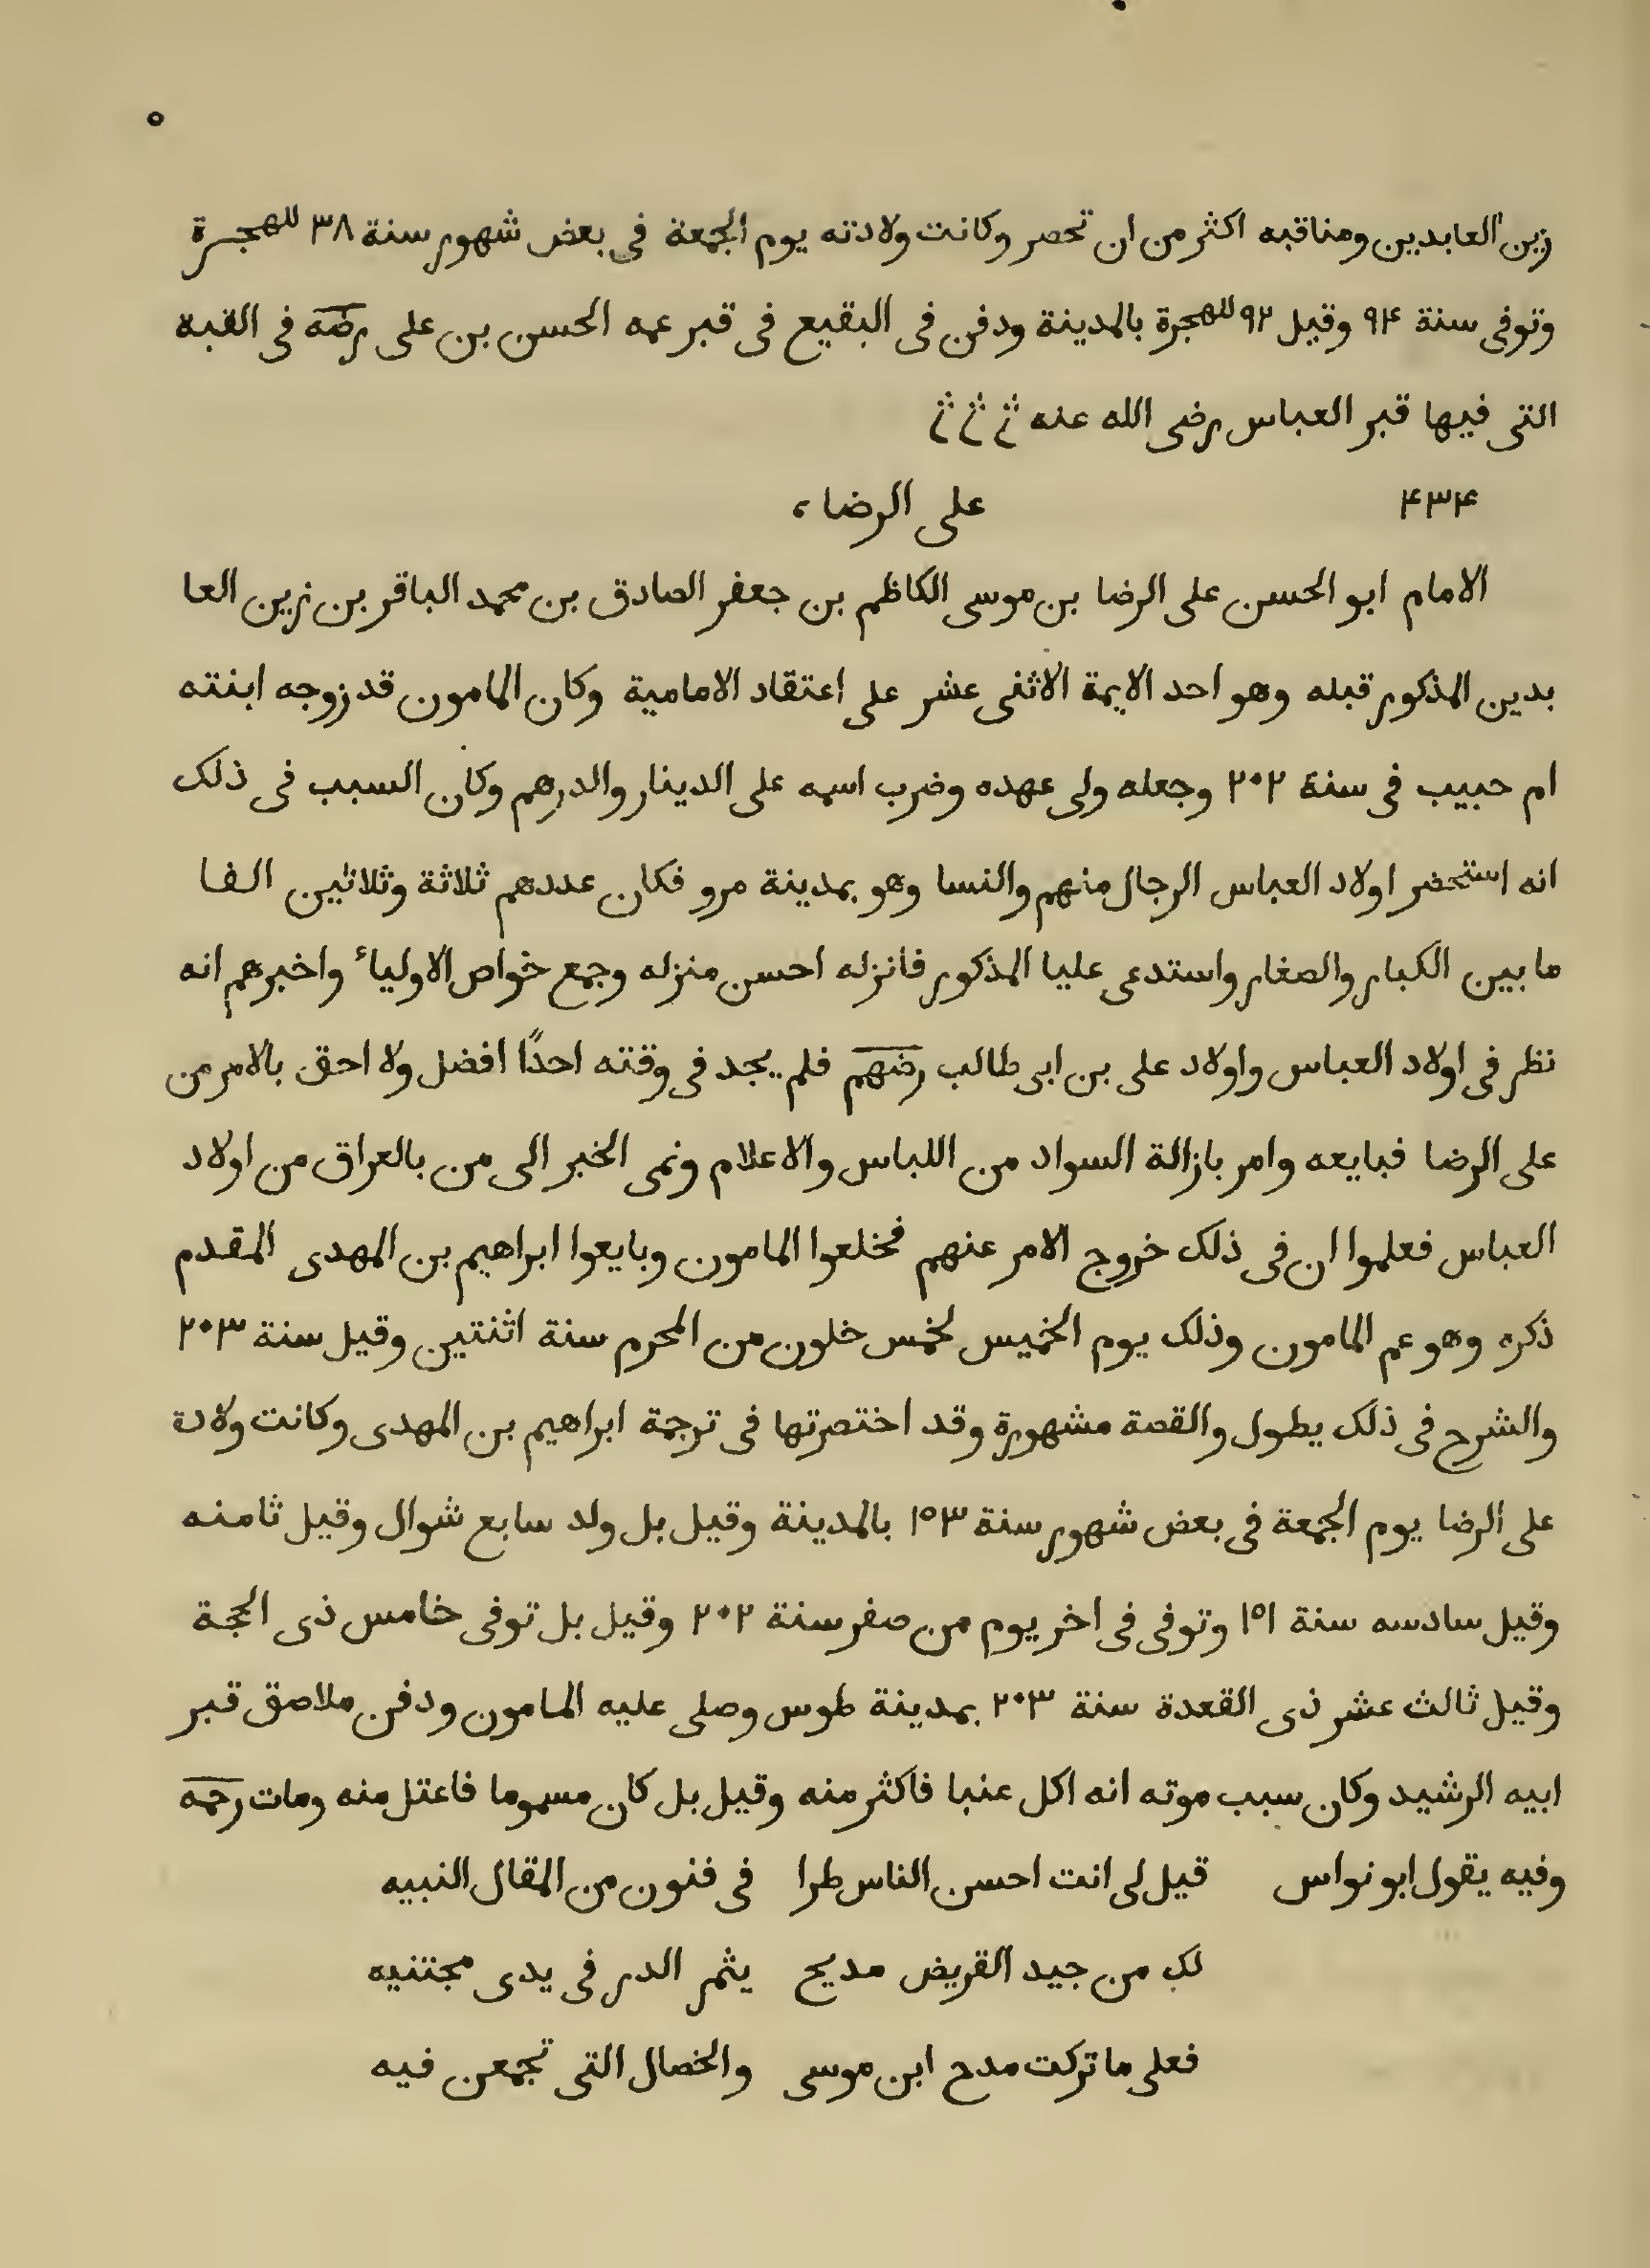 ٥
زين العابدين ومناقبه اكثر من ان تحصر وكانت ولادته يوم الجمعة فى بعض شهور سنة ٣٨ للهجرة
وتوفى سنة ٩۴ وقيل ٩٢ للهجرة بالمدينة ودفن فى البقيع فى قبر عمه الحسن بن على رضه فى القبة
التى فيها قبر العباس رضى الله عنه
۴٣۴ على الرضاء
الامام ابو الحسن على الرضا بن موسى الكاظم بن جعفر الصادق بن محمد الباقر بن زين العا
بدين المذكور قبله وهو احد الايمة الاثنى عشر على اعتقاد الامامية وكان المامون قد زوجه ابنته
ام حبيب فى سنة ٢٠٢ وجعله ولى عهده وضرب اسمه على الدينار والدرهم وكان السبب فى ذلك
انه استحضر اولاد العباس الرجال منهم والنسا وهو بمدينة مرو فكان عددهم ثلاثة وثلاثين الفا
ما بين الكبار والصغار واستدعى عليا المذكور فانزله احسن منزله وجمع خواص الاولياء واخبرهم انه
نظر فى اولاد العباس واولاد على بن ابى طالب رضهم فلم يجد فى وقته احدًا افضل ولا احق بالامر من
على الرضا فبايعه وامر بازالة السواد من اللباس والاعلام ونمى الخبر الى من بالعراق من اولاد
العباس فعلموا ان فى ذلك خروج الامر عنهم فخلعوا المامون وبايعوا ابراهيم بن المهدى المقدم
ذكره وهو عم المامون وذلك يوم الخميس لخمس خلون من المحرم سنة اثنتين وقيل سنة ٢٠٣
والشرح فى ذلك يطول والقصة مشهورة وقد اختصرتها فى ترجمة ابراهيم بن المهدى وكانت ولادة
على الرضا يوم الجمعة فى بعض شهور سنة ١٥٣ بالمدينة وقيل بل ولد سابع شوال وقيل ثامنه
وقيل سادسه سنة ١٥١ وتوفى فى اخر يوم من صفر سنة ٢٠٢ وقيل بل توفى خامس ذى الحجة
وقيل ثالث عشر ذى القعدة سنة ٢٠٣ بمدينة طوس وصلى عليه المامون ودفن ملاصق قبر
ابيه الرشيد وكان سبب موته انه اكل عنبا فاكثر منه وقيل بل كان مسموما فاعتل منه ومات رحمه
وفيه يقول ابو نواس قيل لى انت احسن الناس طرا فى فنون من المقال النبيه
لك من جيد القريض مديح يثمر الدر فى يدى مجتنيه
فعلى ما تركت مدح ابن موسى والخصال التى تجمعن فيه